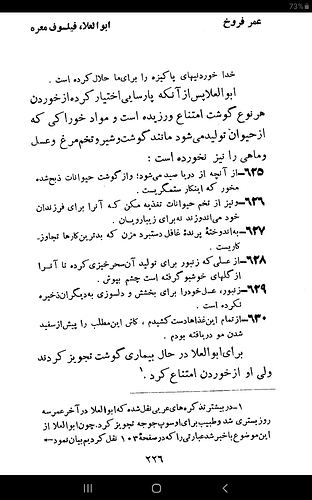 73%
عمر فروخ
ابوالعلاء فیلسوف معره
خدا خوردنیهای پاکیزه را برای ما حلال کرده است .
ابوالعلا پس از آنکه پارسایی اختیار کرده از خوردن
هر نوع گوشت امتناع ورزیده است و مواد خوراکی که
از حیوان تولید می‌شود مانند گوشت و شیر و تخم مرغ و عسل
و ماهی را نیز نخورده است :
۶۲۵ـ از آنچه از دریا صید می‌شود؛ و از گوشت حیوانات ذبح شده
مخور که اینکار ستمگریست .
۶۲۶ـ و نیز از تخم حیوانات تغذیه مکن که آنرا برای فرزندان
خود می‌اندوزند نه برای زیبارویان .
۶۲۷ـ به اندوختهٔ پرندهٔ غافل دستبرد مزن که بدترین کارها تجاوز۔
کاریست .
۶۲۸ـ از عسلی که زنبور برای تولید آن سحرخیزی کرده تا آنرا
از گلهای خوشبو گرفته است چشم بپوش .
۶۲۹ـ زنبور، عسل خود را برای بخشش و دلسوزی به دیگران ذخیره
نکرده است .
۶۳۰ـ از تمام این غذاها دست کشیدم ، کاش این مطلب را پیش از سفید
شدن مو دریافته بودم .
برای ابوالعلا در حال بیماری گوشت تجویز کردند
ولی او از خوردن امتناع کرد .۱
۱ـ در بیشتر تذکره‌های عربی نقل شده که ابوالعلا در آخر عمر سه
روز بستری شد و طبیب برای او سوپ جوجه تجویز کرد . چون ابوالعلا از
این موضوع با خبر شد عبارتی را که در صفحهٔ ۱۰۳ نقل کردیم بیان نمود ←
۲۲۶